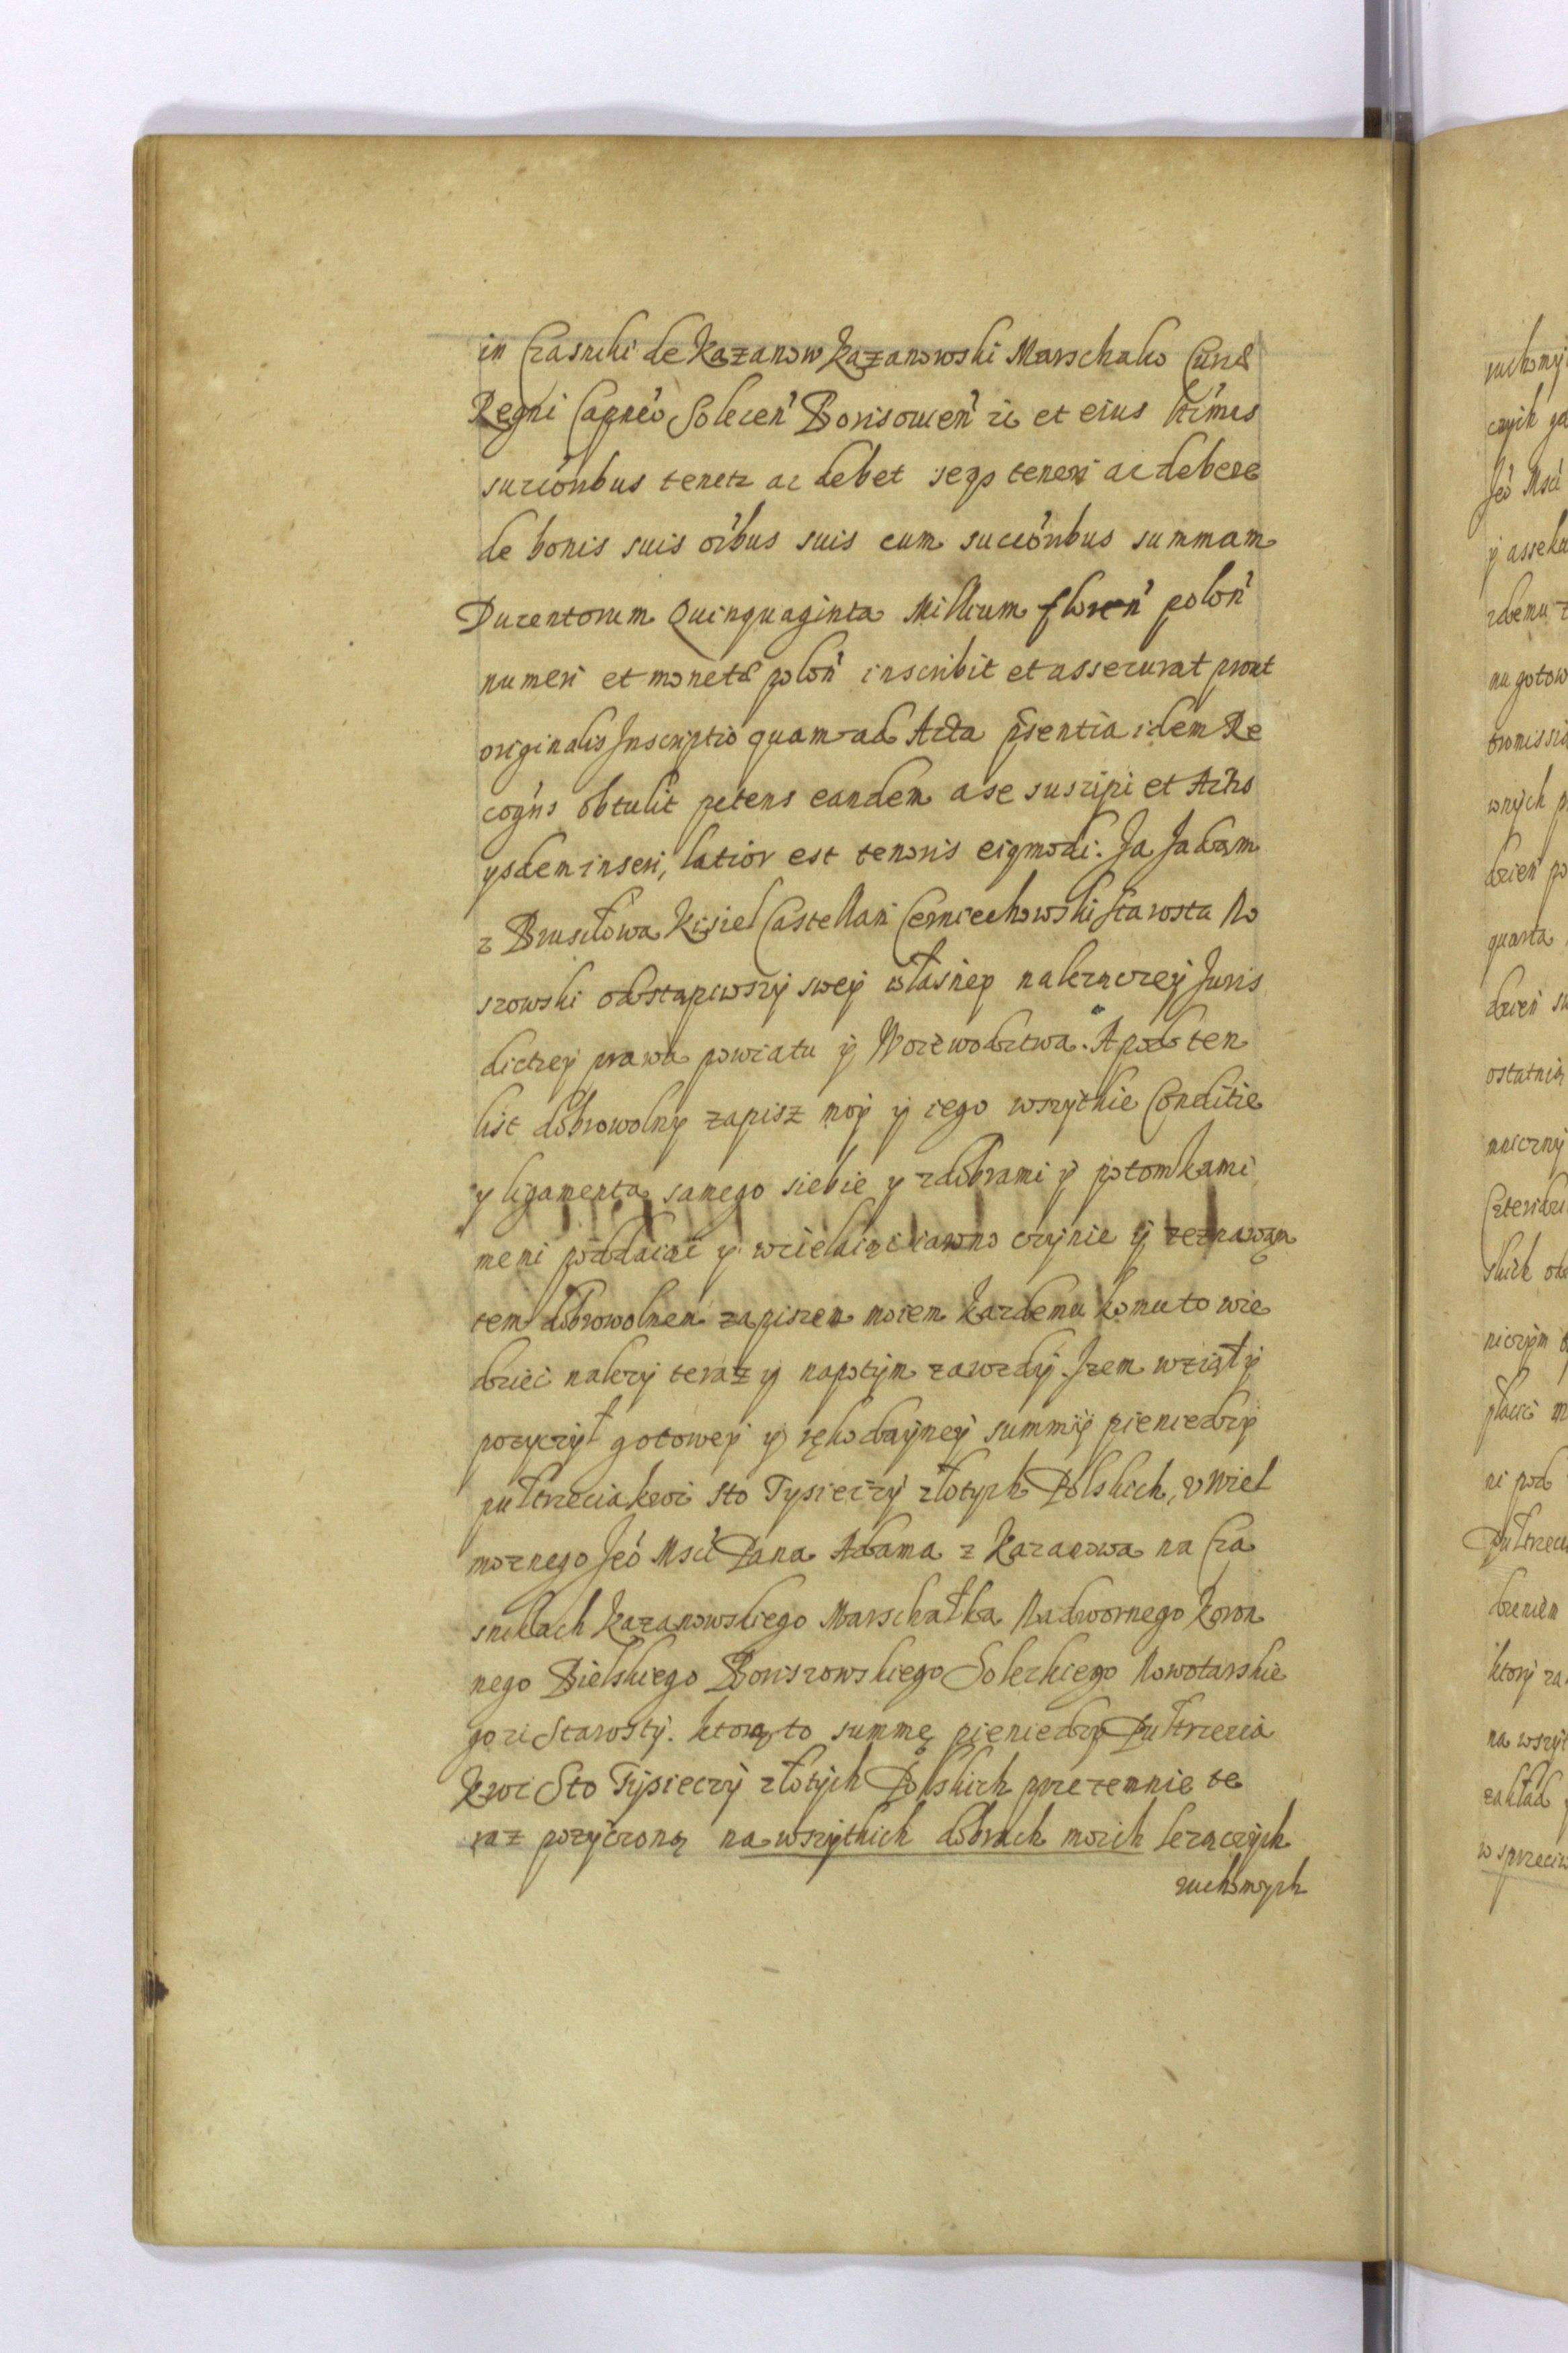 in Czasniki de Kazanow Kazanowski Marschalco Curiæ
Regni Capneo Solecen Borisovien zc et eius ltimis
succoribus tenetr ac debet seqs teneri ac debere
de bonis suis oibus suis cum succoribus summam
Ducentorum Quinquaginta Millium floren polon
numeri et monetæ polon inscribit et assecurat prout
originalis Inscriptio quam ad Acta psentia idem Re
cogns obtulit petens eandem a se suscipi et Actis
ysdem inseri, latior est tenoris eiqmodi. Ja Jadam
z Brusiłowa Kisiel Castellan Czerniechowski Starosta No
szowski odstąpiwszy swey własney należączey Juris
dictzey prawa powiatu y Woiewodztwa. A pod ten
list dobrowolny zapisz moy y iego wszytkie Conditie
y ligamenta samego siebie y z dobrami y potomkami
memi poddaiąc y wcielaiąc iawno czynie y zeznawam
tem dobrowolnem zapisem moiem kazdemu komu to wie
dzieć nalezy teraz y napotym zawzdy. Jzem wziął y
pozyczył gotowey y rękodayney summy pieniedzy
pułtrzeciakroć sto Tysieczy złotych Polskich, v Wiel
moznego Jeo Mści Pana Adama z Kazanowa na Cza
snikach Kazanowskiego Marschałka Nadwornego Koron
nego Bielskiego Boriszowskiego Soleckiego Nowotarskie
go zc Starosty. ktorą to summę pieniedzy Pułtrzecia
kroć Sto Tysieczy złotych Polskich przezemnie te
raz pozyczoną na wszytkich dobrach moich lezączych
ruchomych